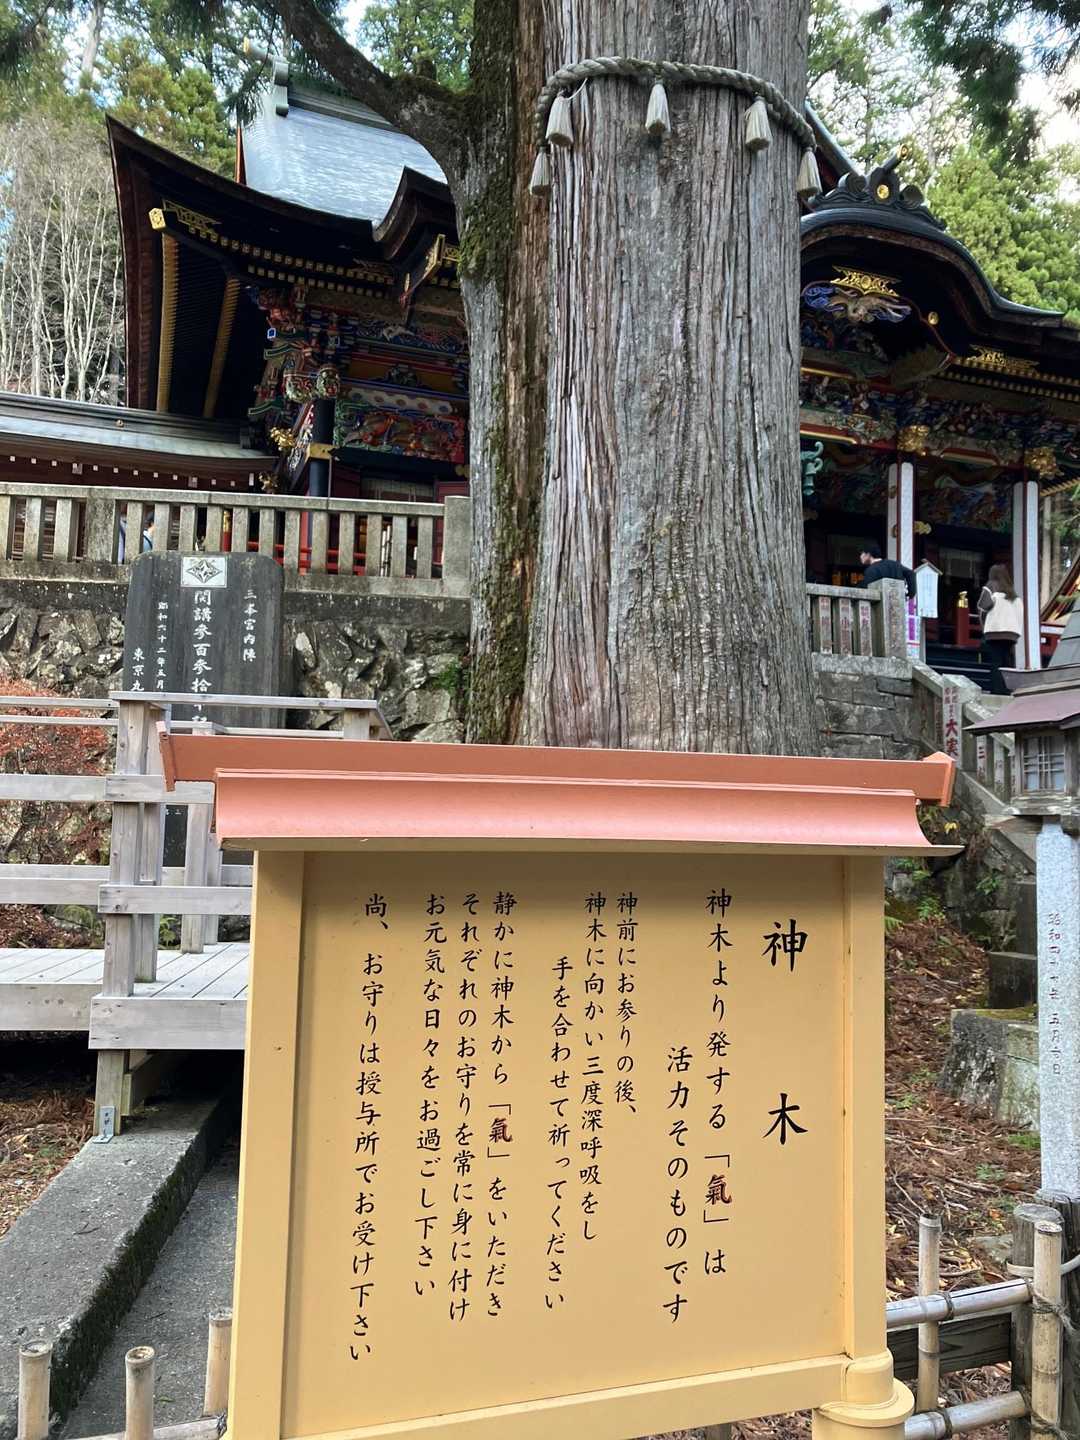 神木
神木より発する「氣」は
活力そのものです
神前にお参りの後、
神木に向かい三度深呼吸をし
手を合わせて祈ってください
静かに神木から「氣」をいただき
それぞれのお守りを常に身に付け
お元気な日々をお過ごし下さい
尚、お守りは授与所でお受け下さい
三峯宮内陣
開講参百参拾
昭和六十二年五月
東京丸
大実
五月六日